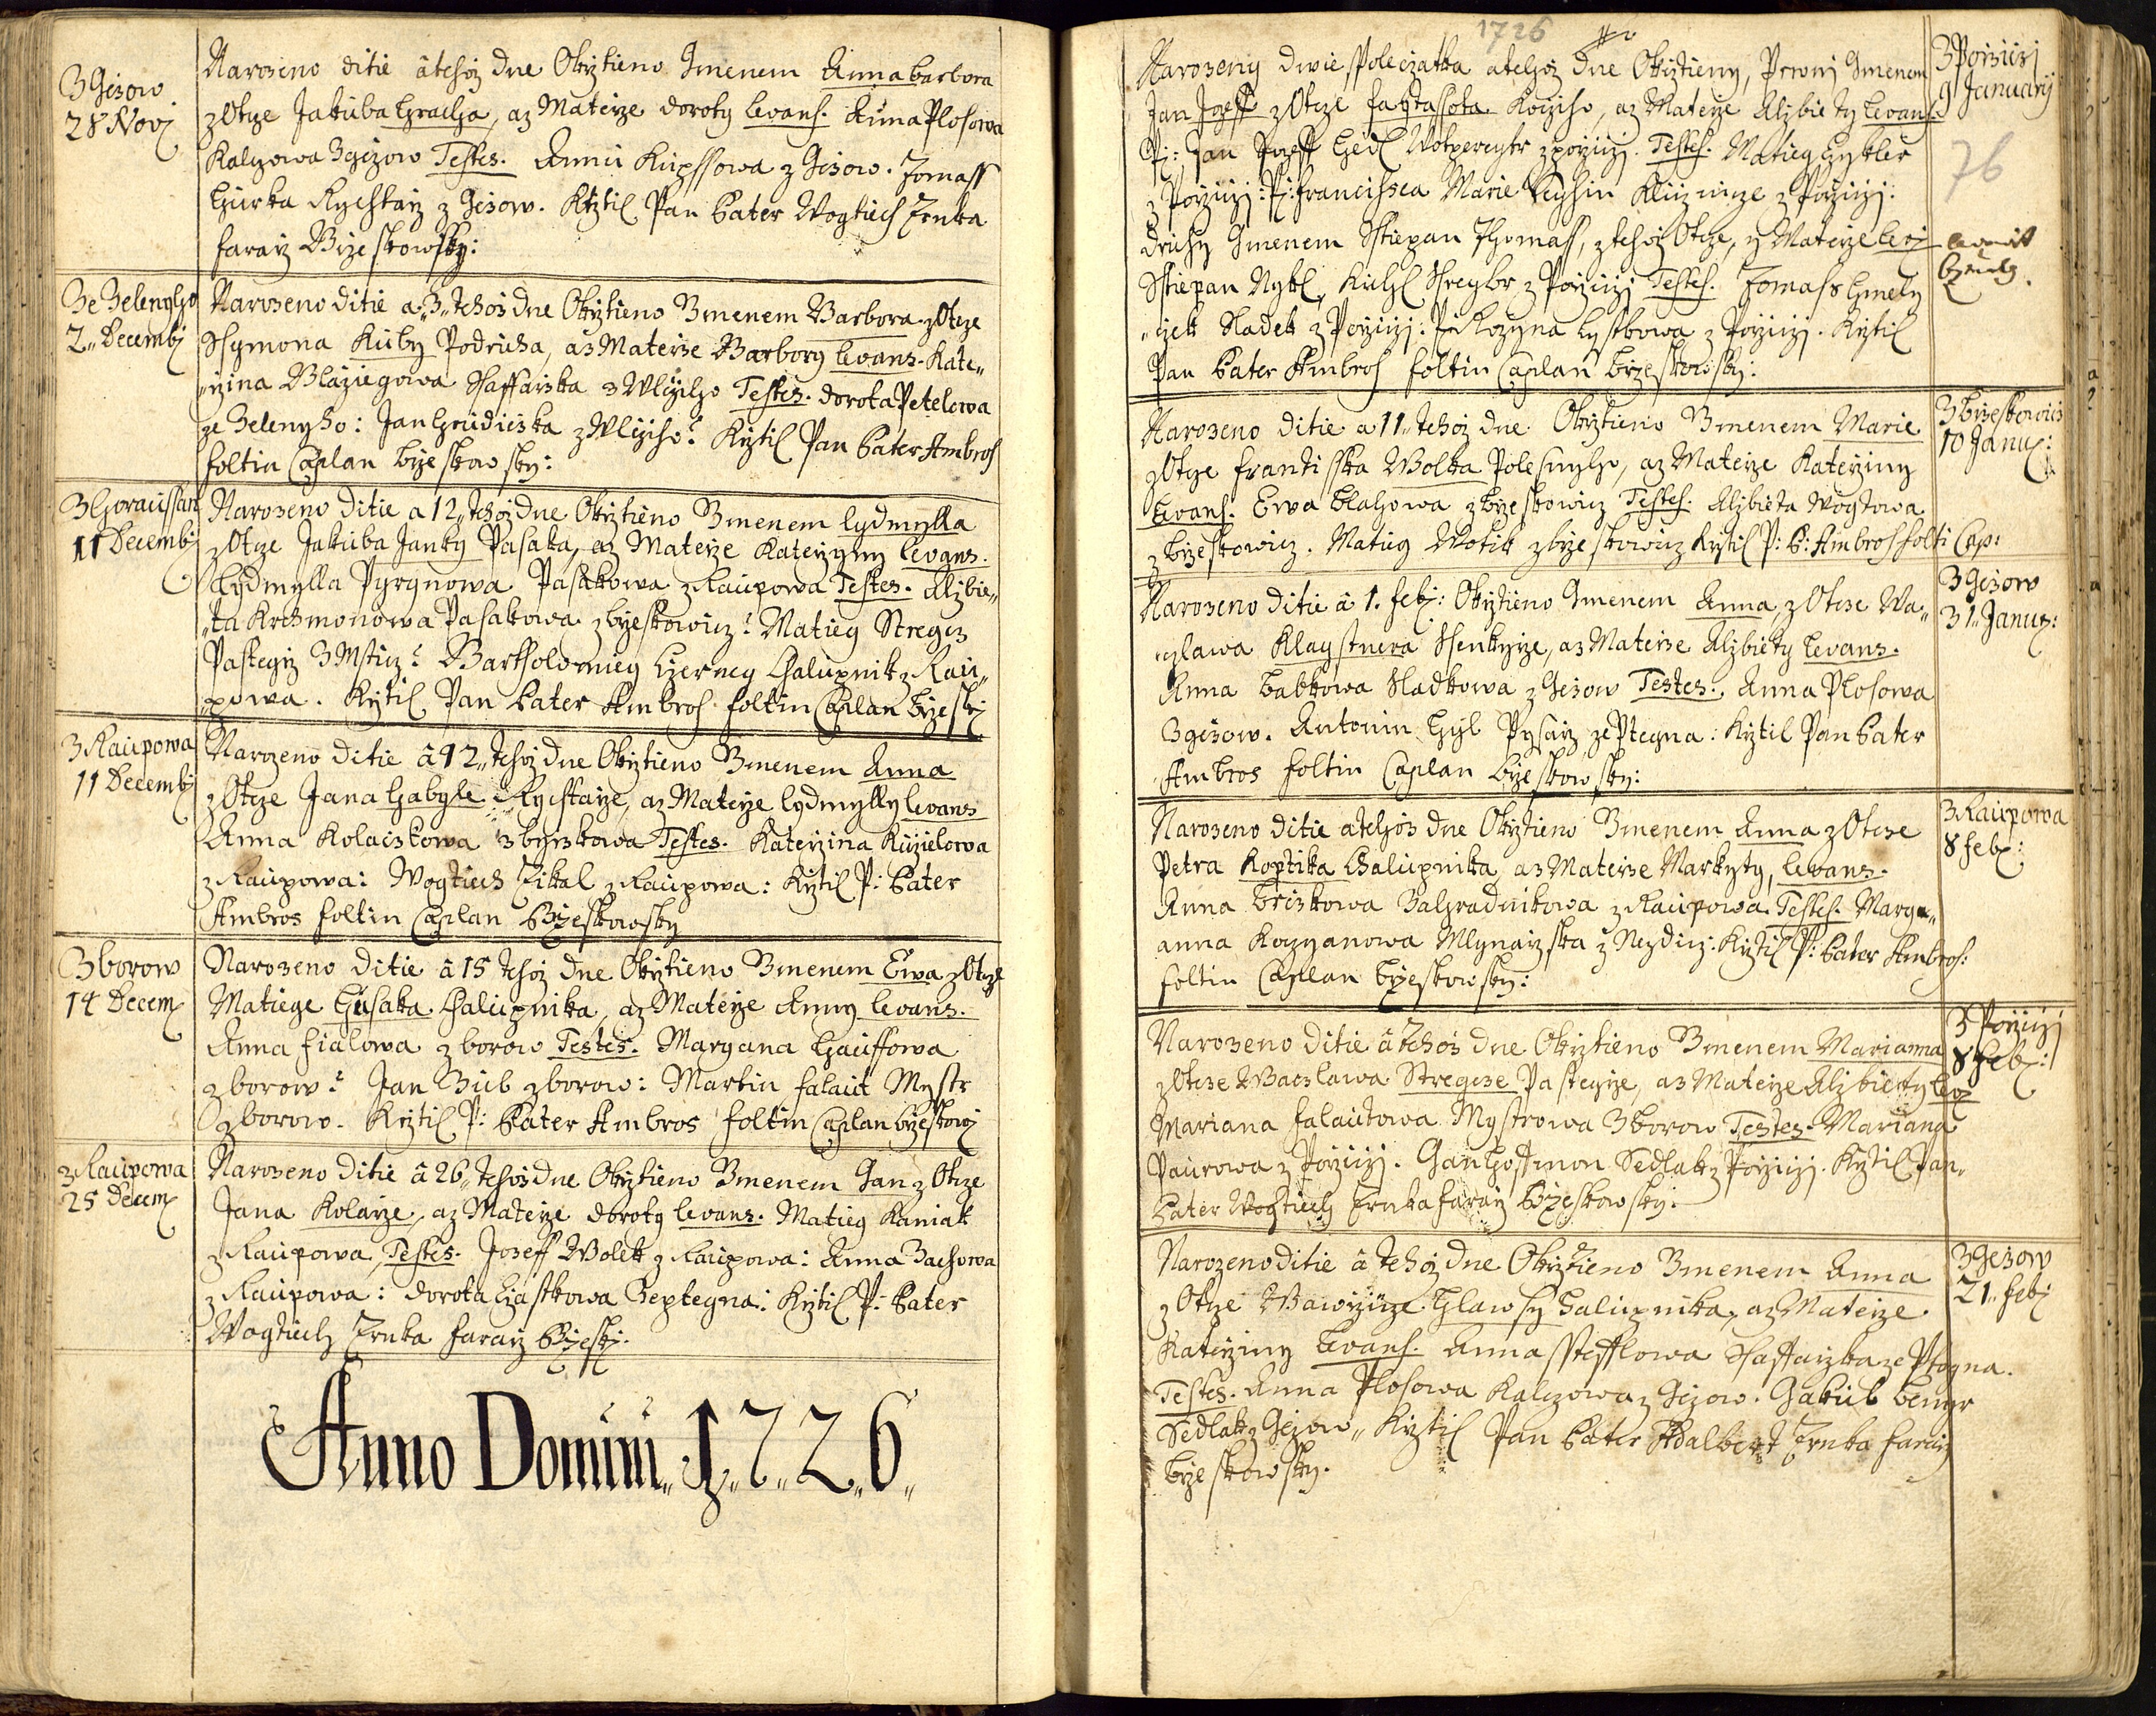 3 Gezow
28 Novj
Narozeno ditie âtehoz dne Okrztieno Gmenem Anna barbora
z Otcze Jakuba Hracha, az Materze doroty levans. Anna Plosowa
Kalczowa Zgezow Testes. Anna Kupssowa z Gezow. Tomass
Hurka Rychtarz z Gezow. Krztil Pan Pater Wogtiech Trnka
fararz Brzeskowsky:
Ze Zelenyho
2,, Decembj
Narozeno ditie a,,3,, tehoz dne Okrztieno Gmenem Barbora z Otcze
Ssymona Kuby Podruha, az Materze Barbory levans. Kate,,
,,rzina Blaziegowa Ssaffarzka z Wlcziho Testes. dorota Petelowa
ze Zelenyho: Jan Hrudiczka z Wlcziho: Krztil Pan Pater Ambros
foltin Caplan brzeskowsky:
3 Horaussan
11 Decembj
Narozeno ditie a 12,, tehoz dne Okrztieno Gmenem lydmylla
z Otcze Jakuba Janky Pasaka, az Materze Katerzyny levans.
Lydmylla Pyrgnowa Pasakowa z Raupowa Testes. Alzbie,,
,,ta Krzmonowa Pasakowa z brzeskowicz: Matieg Stregcz
Pastegrz Z Msticz: Bartholomieg Czerney Chalupnik z Rau,,
,,powa. Krztil Pan Pater Ambros foltin Caplan brzeskj
3 Raupowa
11 Decembj
Narozeno ditie â 12,, tehoz dne Okrztieno Gmenem Anna
z Otcze Jana Habyle Rychtarze, az Materze lydmylly levans
Anna Kolaczkowa z byrzkowa Testes. Katerzina Kuzielowa
z Raupowa: Wogtiech Zikal z Raupowa: Krztil P: Pater
Ambros foltin Caplan Brzeskowsky
3 borow
14 Decem
Narozeno ditie â 15 tehoz dne Okrztieno Gmenem Ewa z Otcze
Matiege Husaka Chalupnika, az Materze Anny levans.
Anna fialowa z borow Testes. Maryana Hauffowa
z borow: Jan Bub z borow: Martin falaut Mystr
z borow. Krztil P: Pater Ambros foltin Caplan brzeskowj
3 Raupowa
25 Decem
Narozeno ditie â 26,, tehoz dne Okrztieno Gmenem Jan z Otcze
Jana Kolarze, az Materze doroty levans. Matieg Kaniak
z Raupowa, Testes. Joseff Wolek z Raupowa: Anna Zachowa
z Raupowa: dorota Czastkowa Zeptegna: Krztil P: Pater
Wogtiech Trnka fararz Brzeskj:
Anno Domini,, 1,,7,,2,,6,,
1726
Narozeny dwie Spoleczatka atehoz dne Okrztieny, Prwnj Gmenem
Jan Jozeff z Otcze faytassota Koczyho, az Materze Alzbiety levans.
Pj: Jan Jozeff Hedl Wotperegtr z porziczj. Testes. Matieg Hybler
z Porziczj: Pj: francissca Marie Pechin Kliucznicze z Porziczj:
druhy Gmenem Sstiepan Thomass, z tehoz Otcze, y Materze levj
Sstiepan Nykl, Kuchl Ssreybr z Porziczj Testes. Tomass Hmely,,
,,czek Sladek z Porziczj: P. Rozyna Lystkowa z Porziczj. Krztil
Pan Pater Ambros foltin Caplan brzeskowsky:
3 Porziczj
9 January
76
Narozeno ditie a 11,, tehoz dne Okrztieno Gmenem Marie
z Otcze frantisska Wolka Polesnyho, az Materze Katerziny
levans. Ewa blahowa z brzeskowicz Testes. Alzbieta Wogtowa
z brzeskowicz. Matieg Wotik z brzeskowicz Krztil P: P: Ambros folti Cap:
3 brzeskowicz
10 Janu:
Narozeno ditie â 1. febj: Okrztieno Gmenem Anna, z Otcze Wa,,
,,czlawa Klaystnera Ssenkyrze, az Materze Alzbiety levans.
Anna babkowa Sladkowa z Gezow Testes. Anna Plosowa
Zgezow. Antonin Hyl Pysarz ze Ptegna: Krztil Pan Pater
Ambros foltin Caplan brzeskowsky:
3 Gezow
31,, Janu:
Narozeno ditie atehoz dne Okrztieno Gmenem Anna z Otcze
Petra Koptika Chalupnika, az Materze Markyty, levans.
Anna brizkowa Zahradnikowa z Raupowa. Testes. Marya,,
anna Koczyanowa Mlynarzska z Neydicz: Krztil P: Pater Ambros:
foltin Caplan brzeskowsky:
3 Raupowa
8 feb:
Narozeno ditie âtehoz dne Okrztieno Gmenem Marianna
z Otcze Waczlawa Stregcze Pastegrze, az Materze Alzbiety lev
Mariana falautowa Mystrowa Zborow Testes. Mariana
Paurowa z Porziczj. Jan Hoffmon Sedlak z Porziczj. Krztil Pan,,
Pater Wogtiech Trnka fararz Brzeskowsky:
3 Porziczj
8 feb:
Narozeno ditie â tehoz dne Okrztieno Gmenem Anna
z Otcze Wawrzincze Hlawsy Chalupnika, az Materze
Katerziny levans. Anna Sstefflowa Ssaffarzka ze Ptegna.
Testes. Anna Plosowa Kalczowa z Gezow. Jakub
Sedlak z Gezow,, Krztil Pan Pater Adalbert Trnka fararz
brzeskowsky.
3 Gezow
21,, febj